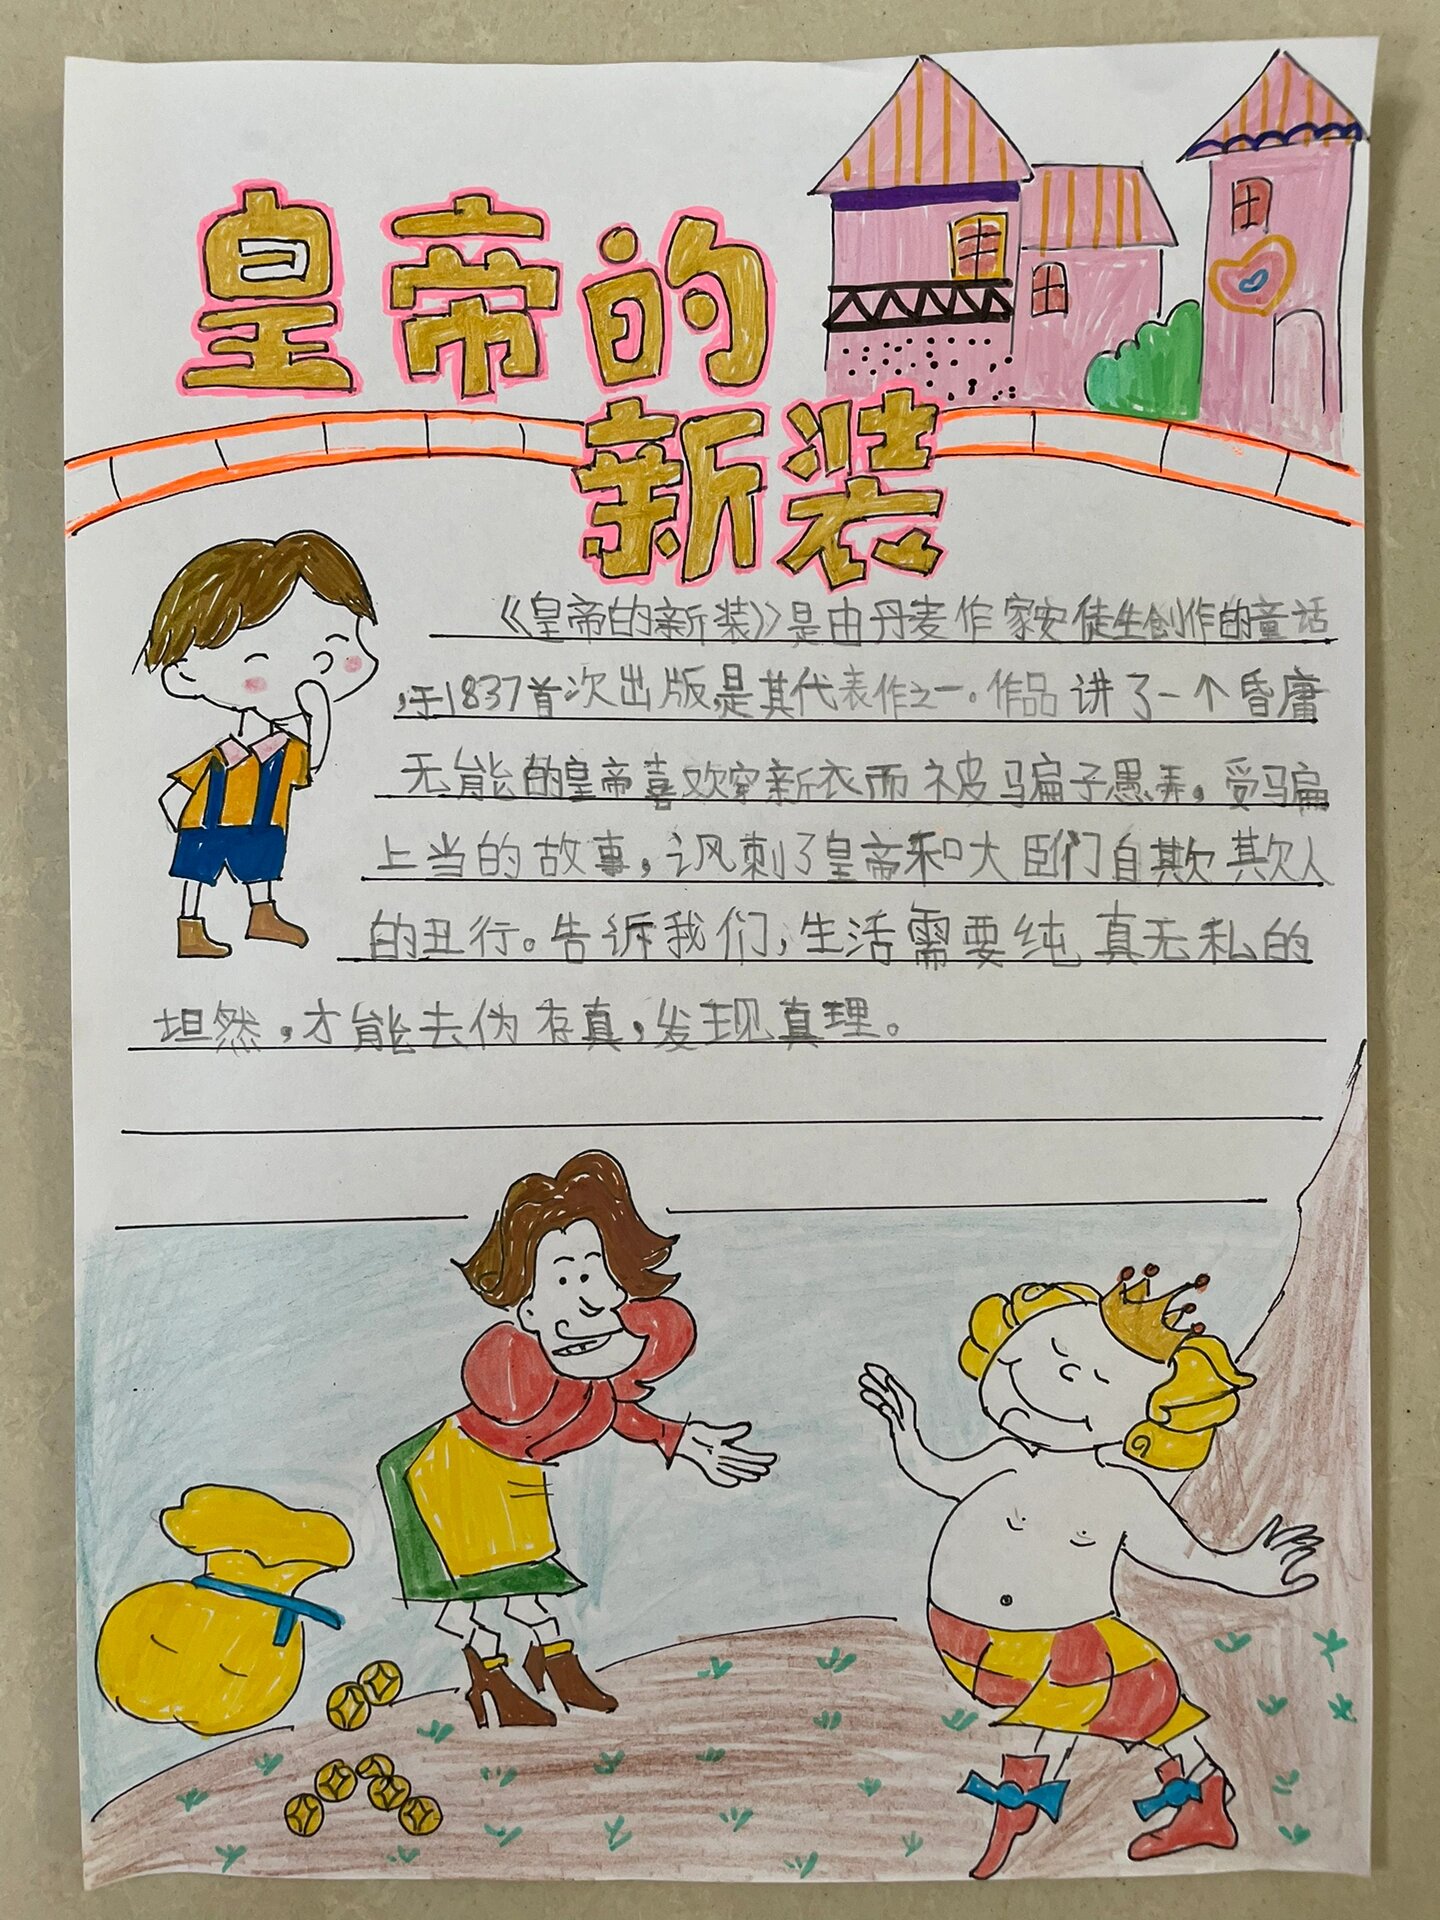 皇帝的
新装
《皇帝的新装》是由丹麦作家安徒生创作的童话
，于1837首次出版，是其代表作之一。作品讲了一个昏庸
无能的皇帝喜欢穿新衣而被骗子愚弄，受骗
上当的故事，讽刺了皇帝和大臣们自欺欺人
的丑行。告诉我们，生活需要纯真无私的
坦然，才能去伪存真，发现真理。